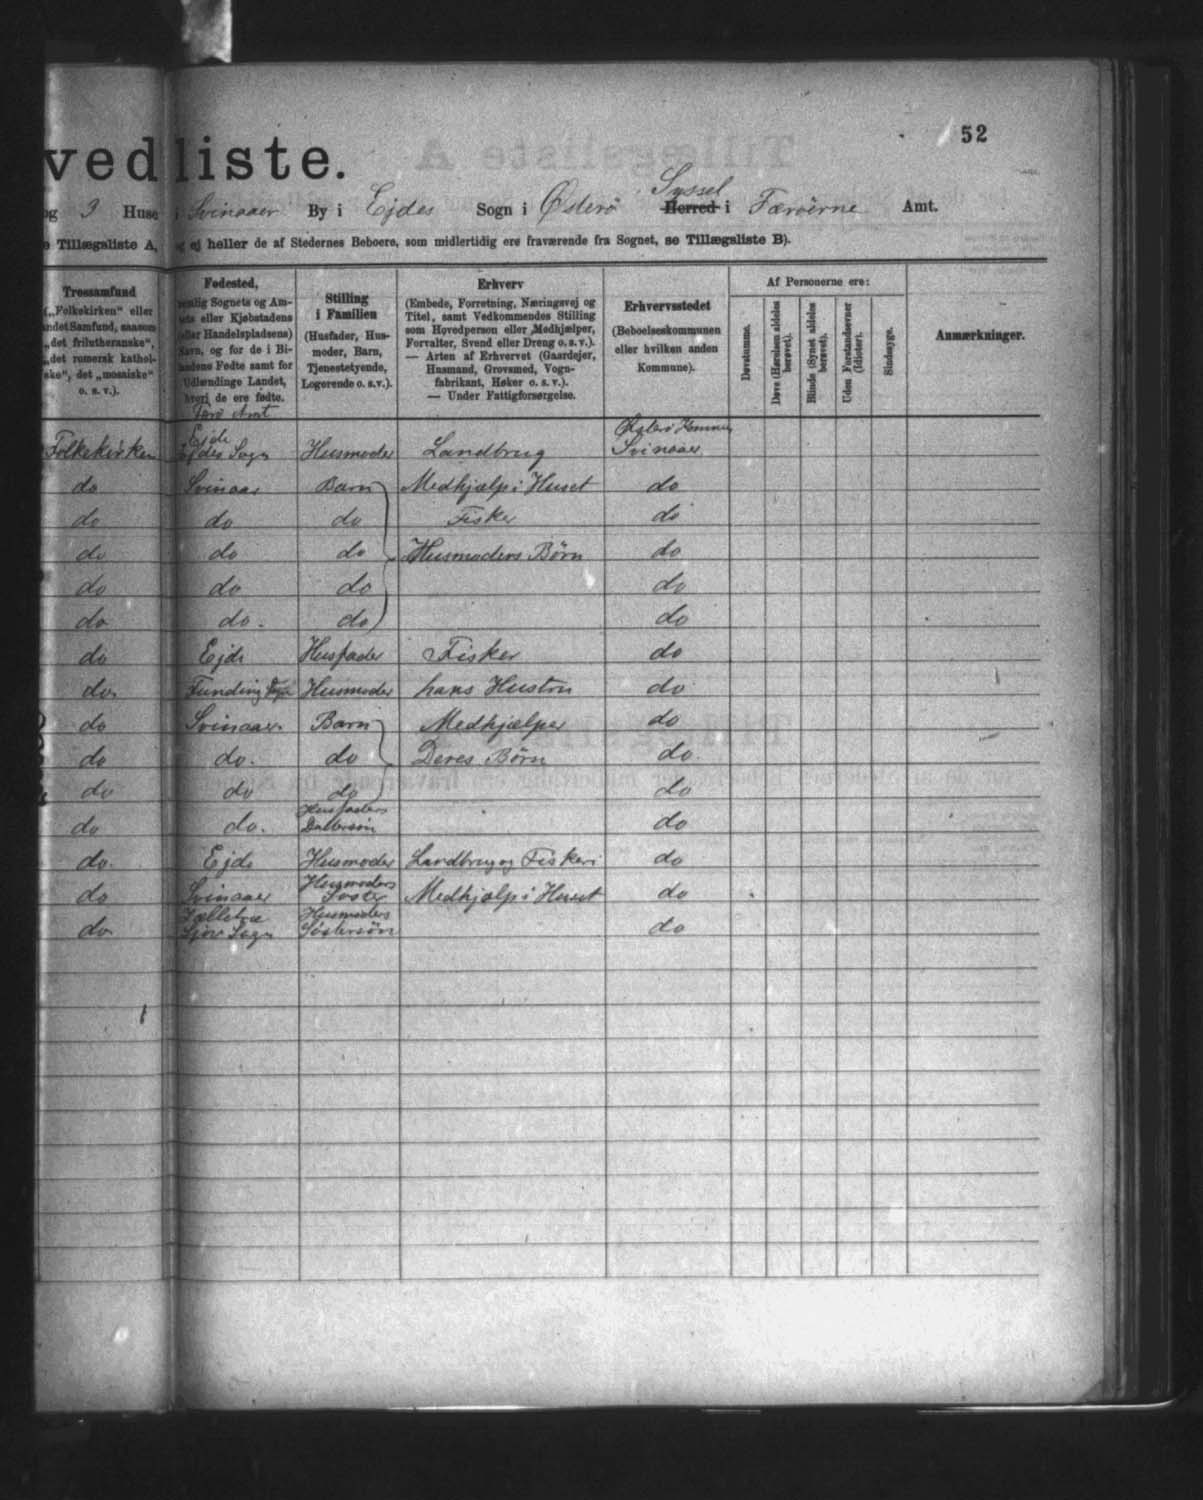 52
vedliste.
og 3 Huse i Svinaaer By i Ejdes Sogn i Østerö Syssel Herred i Færöerne Amt.
e Tillægslisте A, og ej heller de af Stedernes Beboere, som midlertidig ere fraværende fra Sognet, se Tillægsliste B).
Trossamfund
(„Folkekirken" eller
andet Samfund, saasom
„det frilutheranske",
„det romersk kathol-
ske", det „mosaiske"
o. s. v.).
Fødested,
nemlig Sognets og Am-
tets eller Kjøbstadens
(eller Handelspladsens)
Navn, og for de i Bi-
landene Fødte samt for
Udlændinge Landet,
hvori de ere fødte.
Færö Amt
Stilling
i Familien
(Husfader, Hus-
moder, Barn,
Tjenestetyende,
Logerende o. s. v.).
Erhverv
(Embede, Forretning, Næringsvej og
Titel, samt Vedkommendes Stilling
som Hovedperson eller Medhjælper,
Forvalter, Svend eller Dreng o. s. v.).
— Arten af Erhvervet (Gaardejer,
Husmand, Grovsmed, Vogn-
fabrikant, Høker o. s. v.).
— Under Fattigforsørgelse.
Erhvervsstedet
(Beboelseskommunen
eller hvilken anden
Kommune).
Af Personerne ere:
Døvstumme.
Døve (Hørelsen aldeles
berøvet).
Blinde (Synet aldeles
berøvet).
Uden Forstandsevner
(Idioter).
Sindssyge.
Anmærkninger.
Ejde Østerö Kommune
Folkekirken Ejdes Sogn Husmoder Landbrug Svinaaer
do Svinaaer Barn Medhjælp i Huset do
do do do Fisker do
do do do Husmoders Børn do
do do do do
do do. do do
do Ejde Husfader Fisker do
do. Funding Husmoder hans Hustru do
do Svinaaer Barn Medhjælper do
do do. do Deres Børn do.
do do do do
do do. Husfaders Dattersøn do
do. Ejde Husmoder Landbrug og Fiskeri do
do Svinaaer Husmoders Søster Medhjælp i Huset do
do. Sjov Sogn Husmoders Søstersøn do